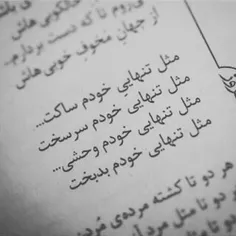 می‌روم تا که دست بردارم...
از جهانِ مَخوفِ خوبی هاش
مثل تنهاییِ خودم ساکت...
مثل تنهایی خودم سرسخت
مثل تنهایی خودم وحشی...
مثل تنهایی خودم بدبخت
هر دو تا کشته مرده‌ی مُردن